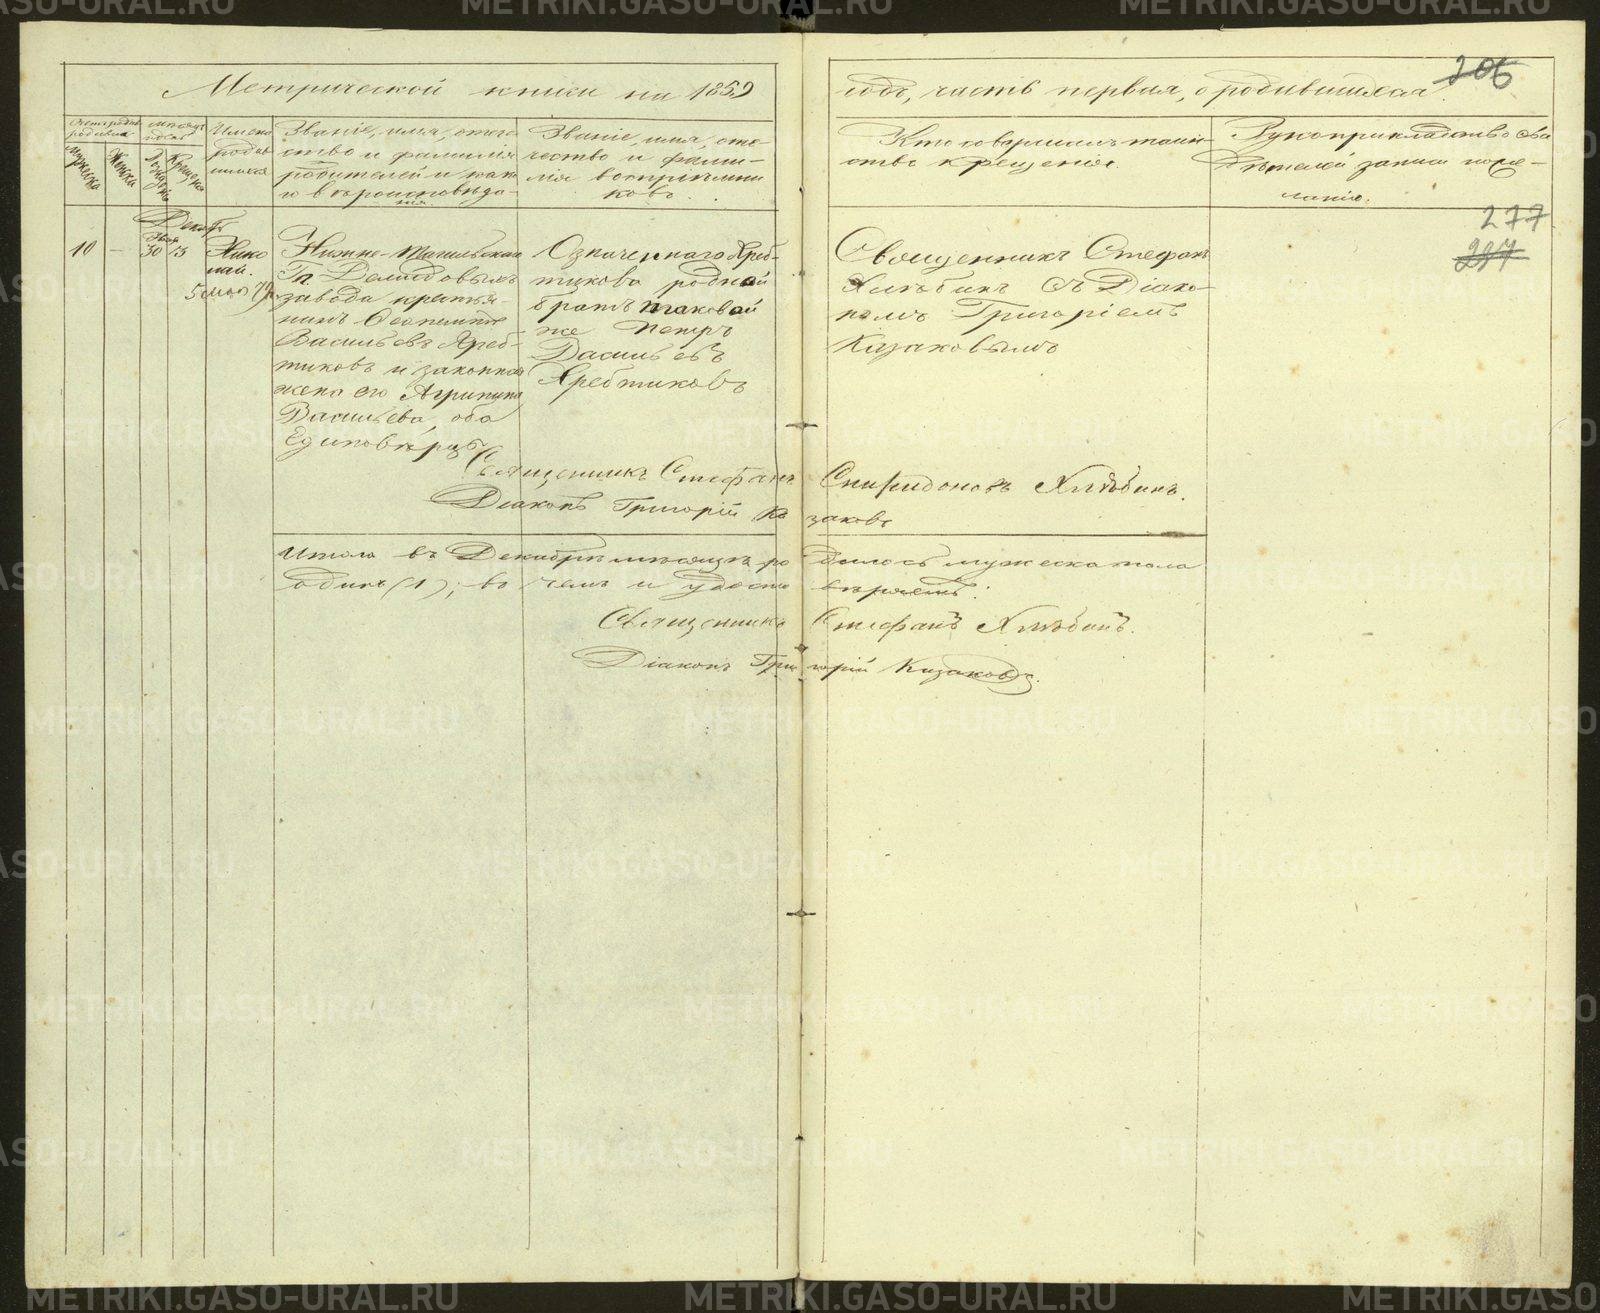 Метрической книги на 1859
годъ, часть первая, о родившихся.
206
Счетъ родив
родивш
Мужеска
Женска
Месяцъ
Рожденія
Крещенія
Имена
родив
шихся
Званіе, имя, отече
ство и фамилія
родителей и како
го вѣроисповѣда-
нія.
Званіе, имя, оте
чество и фами-
лія воспріемни
ковъ.
Кто совершилъ таин
ство крещенія.
Рукоприкладство сви
дѣтелей записи поже-
ланію.
277
237
Декабрь
10
30
13
Нико
лай.
Нижне-Тагильскаго
Гп Демидовыхъ
завода крестья-
нинъ
Васильевъ Хреб-
тиковъ и законная
жена его Агрипина
Васильева, оба
Единовѣрцы
Означеннаго Хреб-
тикова родной
братъ таковой
же Петръ
Васильевъ
Хребтиковъ
Священникъ Стефанъ
Хлѣбинъ съ Діако-
номъ Григоріемъ
Казаковымъ
Священникъ Стефанъ Спиридоновъ Хлѣбинъ.
Діаконъ Григорій Ка заковъ
Итого въ Декабрѣ мѣсяцѣ ро дилось мужеска пола
одинъ (1); въ чемъ и удосто вѣряемъ:
Священникъ Стефанъ Хлѣбинъ.
Діаконъ Гри горій Казаковъ.
METRIKI.GASO-URAL.RU